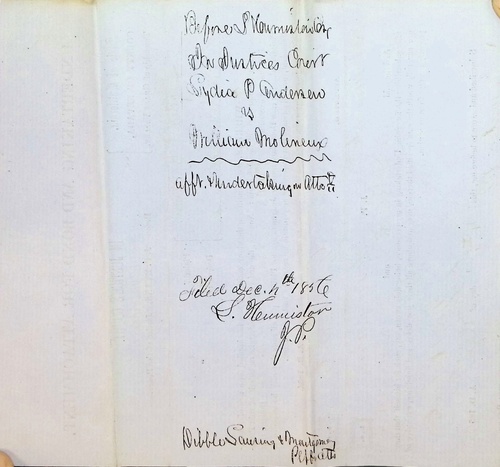 Before S Heumiston
In Justices Court
Lydia P Andersen
vs
William Molineux
afft. & Undertaking on Atto
Filed Dec. 4th 1856
S. Heumiston
J.P.
Dibble Lansing & Montgomery
Plffs Atts